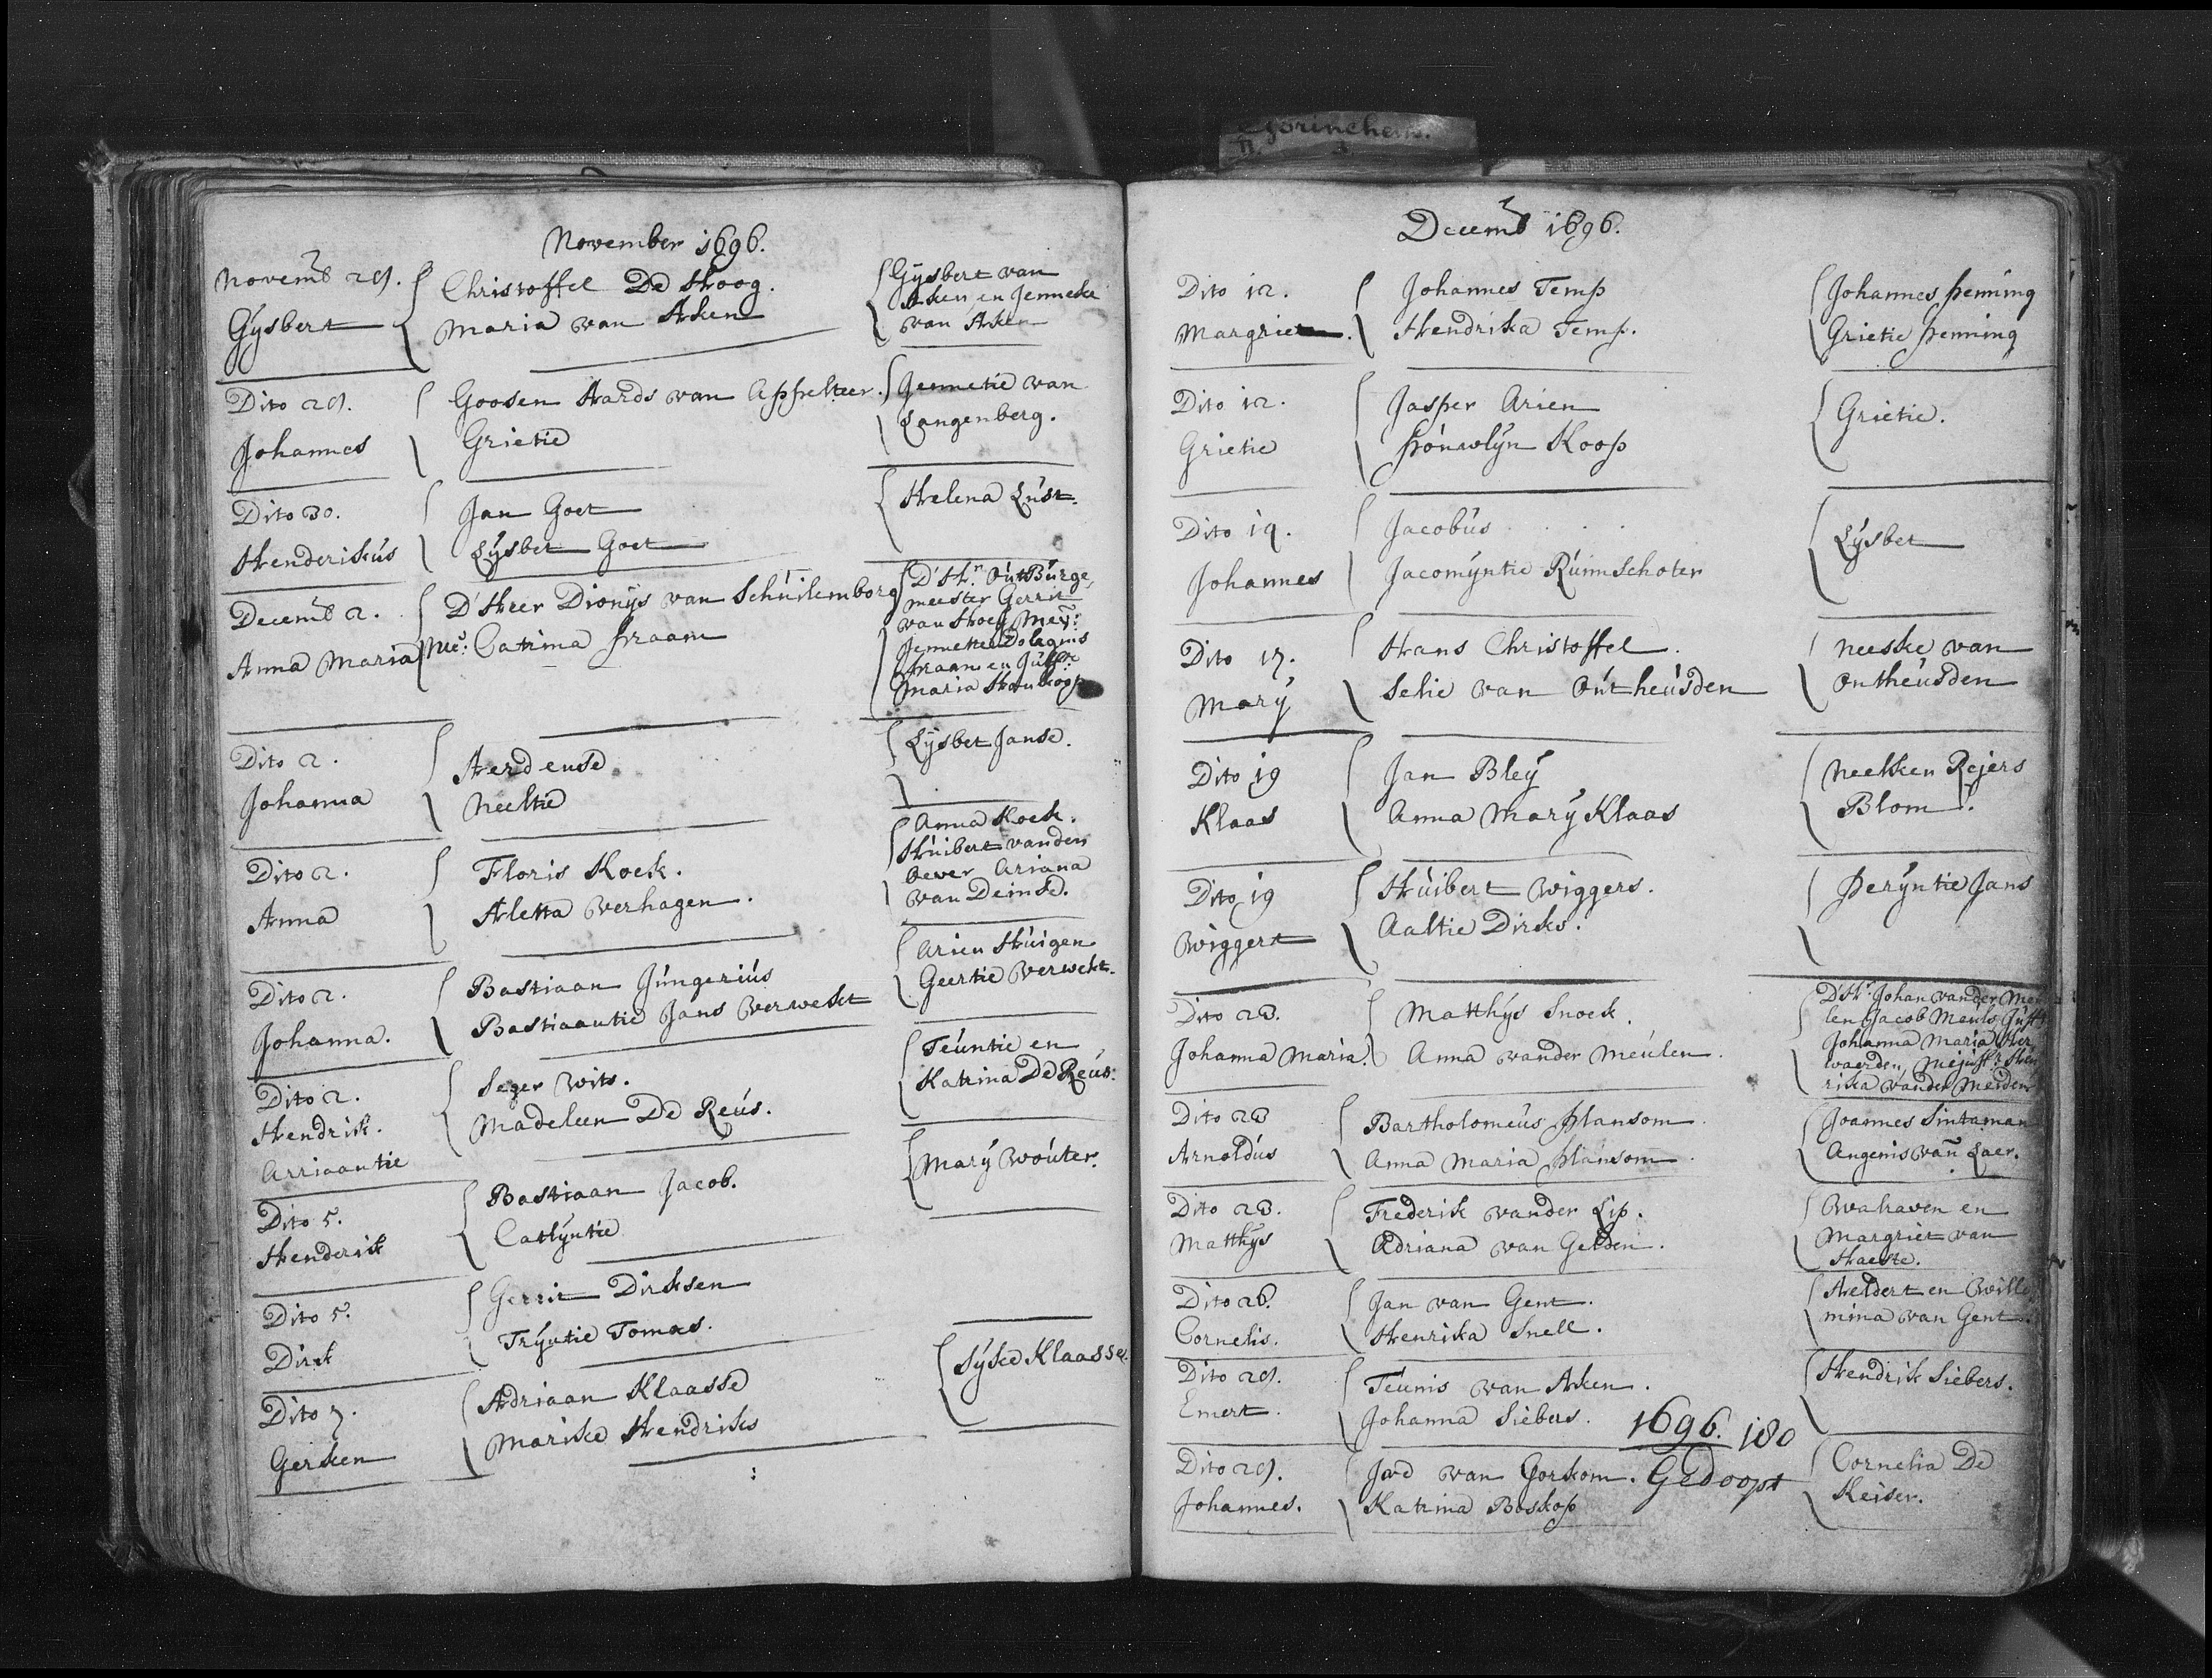 Gorinchem.
November 1696.
Novemb 29.
Gysbert
Christoffel De Hoog.
Maria van Aken
Gysbert van
Aken en Jenneke
van Aken
Dito 29.
Johannes
Goosen Aards van Appelteer.
Grietie
Jennetie van
Langenberg.
Dito 30.
Henderikus
Jan Goet
Lysbet Goet
Helena Lust.
Decemb 2.
Anna Maria
D'Heer Dionys van Schuilemborg
Me: Catrina Praam
D'Hr. Out Burge,
meester Gerrit
van Hoey Mey:
Jennetta
Praam en Juffr:
Maria
Dito 2.
Johanna
Aerdense
Neeltie
Lysbet Janse.
Dito 2.
Anna
Floris Koek.
Aletta Verhagen.
Anna Koek.
Huibert vanden
Oever Ariana
van Deinse.
Dito 2.
Johanna.
Bastiaan Jungerius
Bastiaantie Jans Verwekt
Arien Huigen
Geertie Verwekt.
Dito 2.
Hendrik.
Arriaantie
Seger Wits.
Madeleen De Reus.
Teuntie en
Katrina De Reus.
Dito 5.
Henderik
Bastiaan Jacob.
Catlyntie
Mary Wouter.
Dito 5.
Dirk
Gerrit Dirksen
Tryntie Tomas.
Dito 7.
Gerken
Adriaan Klaasse
Marike Hendriks
Syke Klaasse.
Decemb 1696.
Dito 12.
Margriet.
Johannes Temp
Hendrika Temp.
Johannes Penning
Grietie Penning
Dito 12.
Grietie
Jasper Arien
Pouwlyn Koop
Grietie.
Dito 19.
Johannes
Jacobus . . .
Jacomyntie Ruimschoter
Lysbet
Dito 17.
Mary
Hans Christoffel.
Selie van Outheusden
Neeske van
Outheusden
Dito 19
Klaas
Jan Bley
Anna Mary Klaas
Neelken Rejers
Blom.
Dito 19
Wiggert
Huibert Wiggers.
Aaltie Dirks.
Peryntie Jans
Dito 23.
Johanna Maria.
Matthys Snoek.
Anna vander Meulen.
D'Hr. Johan vander Meu
len Jacob Meuls Juffr
Johanna Maria Her,
waerden, Mejuffr: Hen
rika vander Meiden
Dito 23
Arnoldus
Bartholomeus Plansom
Anna Maria Plansom
Joannes Sintaman
Angenis van Laer.
Dito 23.
Matthys
Frederik vander Lip.
Adriana van Gelden.
Walraven en
Margriet van
Haeste.
Dito 26.
Cornelis.
Jan van Gent.
Henrika Snell.
Aeldert en Wille,
mina van Gent.
Dito 29.
Emert.
Teunis van Aken.
Johanna Siebers.
Hendrik Siebers.
Dito 29.
Johannes.
Jad van Gorkom.
Katrina Boskop
Cornelia De
Keiser.
1696. 180
Gedoopt